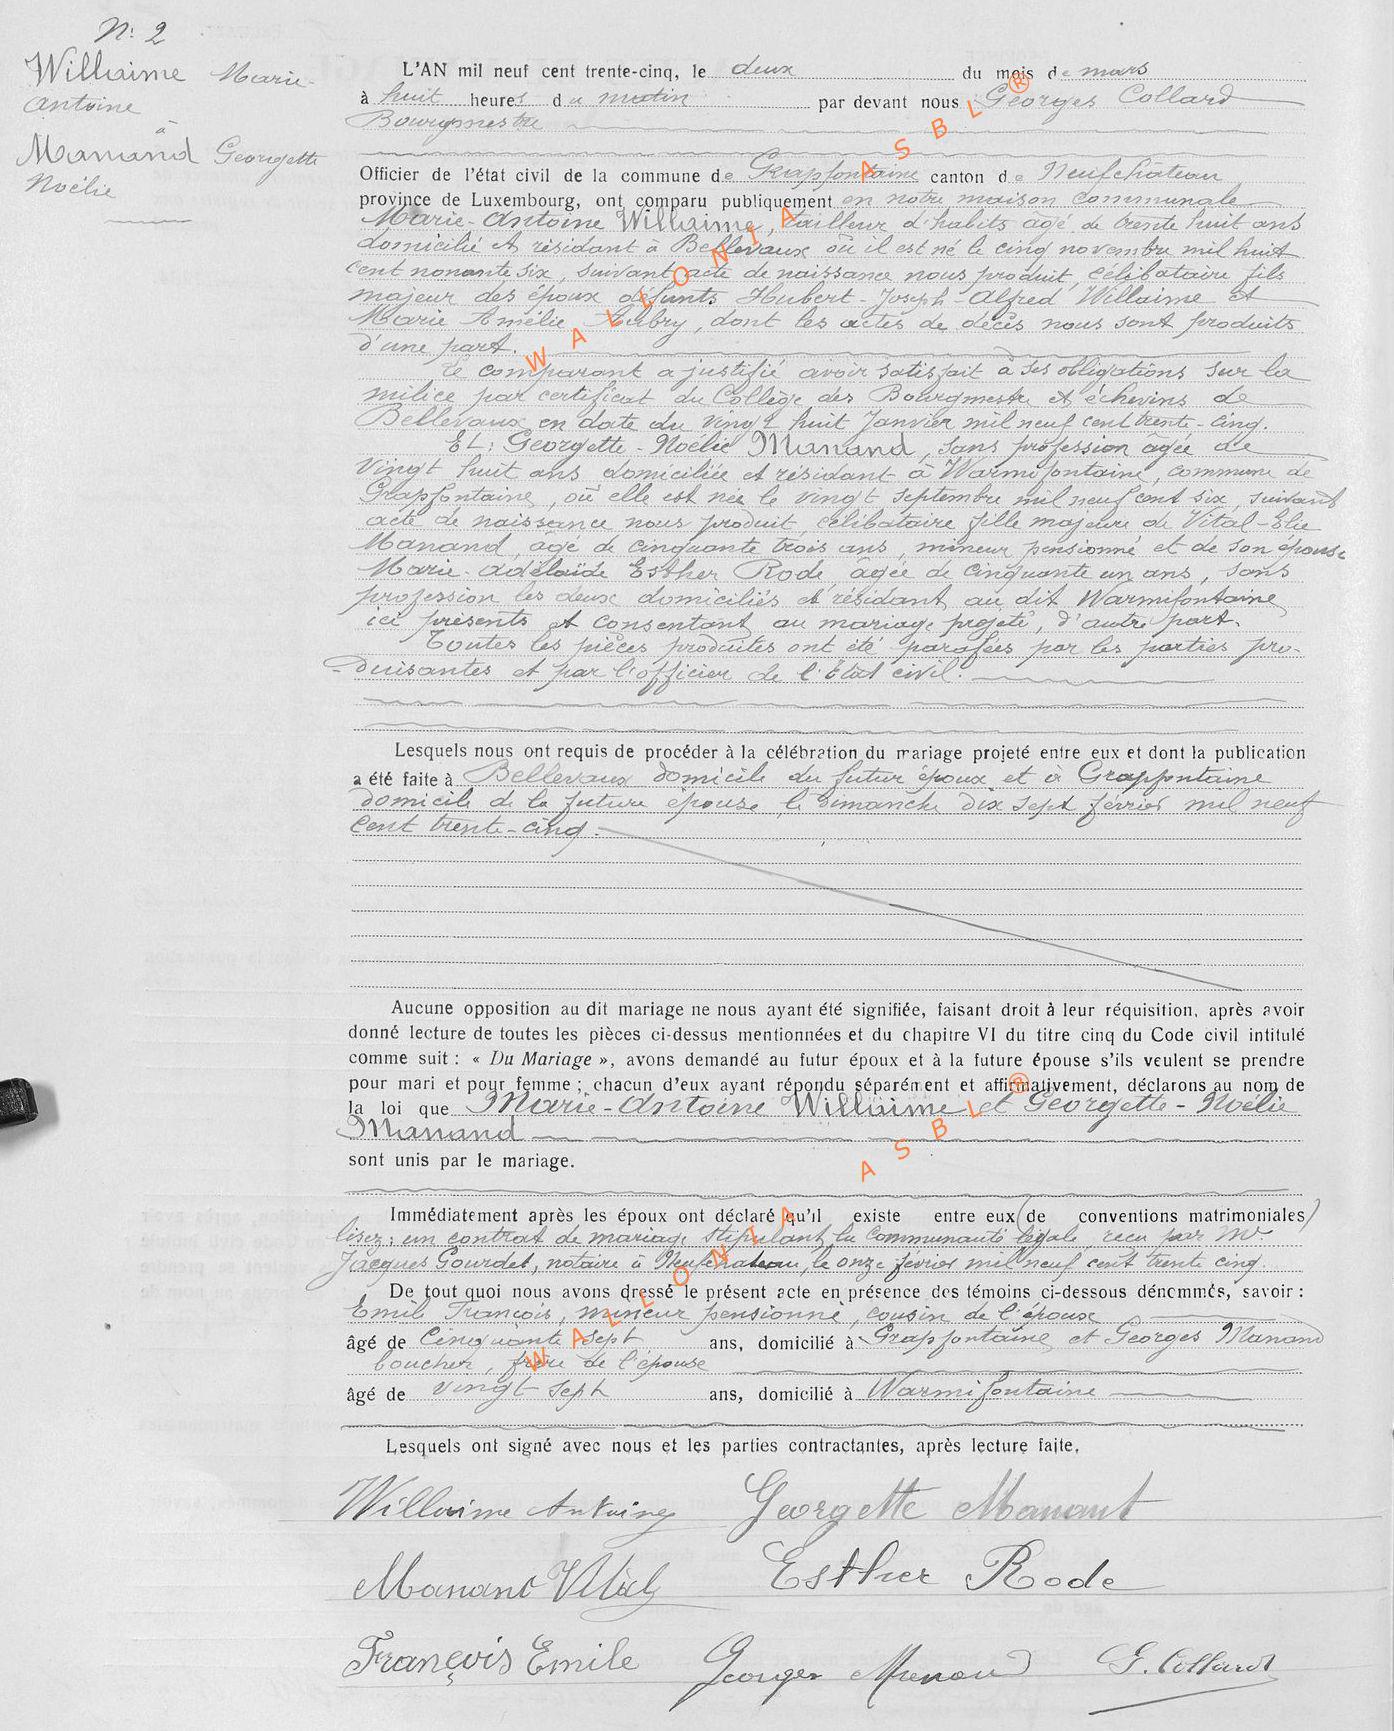 N: 2
Williaime Marie-
Antoine
à
Manand Georgette
Noélie
L'AN mil neuf cent trente-cinq, le deux du mois de mars
à huit heures du matin par devant nous Georges Collard
Bourgmestre
Officier de l'état civil de la commune de Grapfontaine canton de Neufchâteau
province de Luxembourg, ont comparu publiquement en notre maison communale
Marie-Antoine Williaime, tailleur d'habits âgé de trente huit ans
domicilié et résidant à Bellevaux où il est né le cinq novembre mil huit
cent nonante six, suivant acte de naissance nous produit, célibataire fils
majeur des époux défunts Hubert-Joseph-Alfred Villaime et
Marie Amélie Aubry, dont les actes de décès nous sont produits
d'une part.
Le comparant a justifié avoir satisfait à ses obligations sur la
milice par certificat du Collège des Bourgmestre et échevins de
Bellevaux en date du vingt huit Janvier mil neuf cent trente-cinq.
Et: Georgette-Noélie Manand, sans profession âgée de
vingt huit ans domiciliée et résidant à Warmifontaine, commune de
Grapfontaine, où elle est née le vingt septembre mil neuf cent six, suivant
acte de naissance nous produit, célibataire fille majeure de Vital-Elie
Manand, âgé de cinquante trois ans, mineur pensionné et de son épouse
Marie-Adélaïde Esther Rode, âgée de cinquante un ans, sans
profession les deux domiciliés et résidant au dit Warmifontaine
ici présents et consentant au mariage projeté, d'autre part.
Toutes les pièces produites ont été parafées par les parties pro-
duisantes et par l'officier de l'Etat civil.
Lesquels nous ont requis de procéder à la célébration du mariage projeté entre eux et dont la publication
a été faite à Bellevaux domicile du futur époux et à Grapfontaine
domicile de la future épouse, le dimanche dix sept février mil neuf
cent trente-cinq.
Aucune opposition au dit mariage ne nous ayant été signifiée, faisant droit à leur réquisition, après avoir
donné lecture de toutes les pièces ci-dessus mentionnées et du chapitre VI du titre cinq du Code civil intitulé
comme suit : « Du Mariage », avons demandé au futur époux et à la future épouse s'ils veulent se prendre
pour mari et pour femme ; chacun d'eux ayant répondu séparément et affirmativement, déclarons au nom de
la loi que Marie-Antoine Williaime et Georgette-Noélie
Manand
sont unis par le mariage.
Immédiatement après les époux ont déclaré qu'il existe entre eux (de conventions matrimoniales)
lisez: un contrat de mariage stipulant la communauté légale reçu par Me
Jacques Gourdet, notaire à Neufchâteau, le onze février mil neuf cent trente cinq.
De tout quoi nous avons dressé le présent acte en présence des témoins ci-dessous dénommés, savoir :
Emil François, mineur pensionné, cousin de l'époux
âgé de Cinquante sept ans, domicilié à Grapfontaine et Georges Manand
boucher, frère de l'épouse
âgé de vingt sept ans, domicilié à Warmifontaine
Lesquels ont signé avec nous et les parties contractantes, après lecture faite.
Williaime Antoine Georgette Manant
Manant Vital Esther Rode
François Emile Georges Menand G. Collard
WALLONIA ASBL®
WALLONIA ASBL®